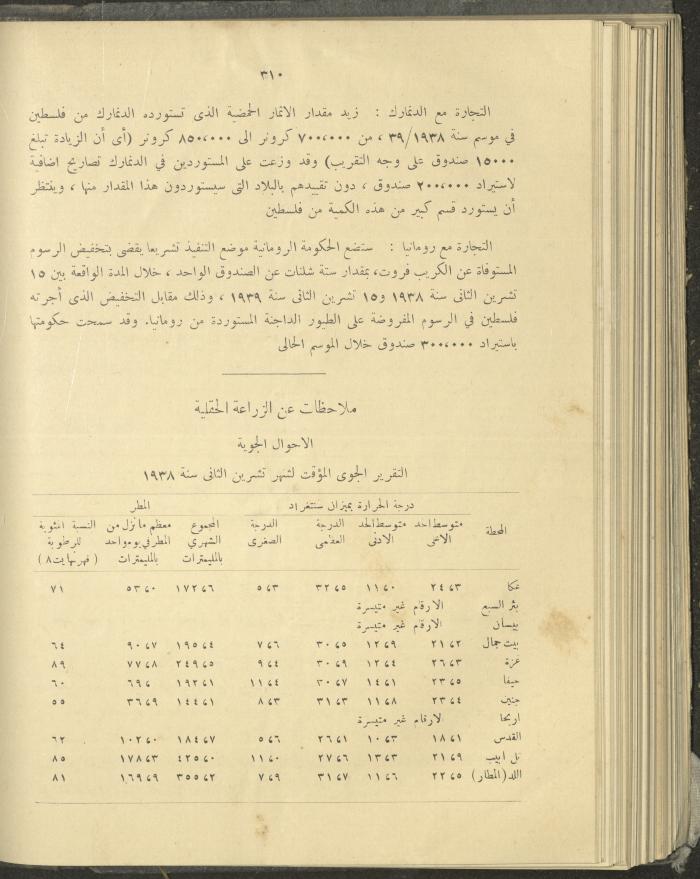 ٣١٠
التجارة مع الدنمارك : زيد مقدار الاثمار الحمضية الذى تستورده الدنمارك من فلسطين
في موسم سنة ٣٩/١٩٣٨ ، من ٧٠٠،٠٠٠ كرونر الى ٨٥٠،٠٠٠ كرونر (أى أن الزيادة تبلغ
١٥٠٠٠ صندوق على وجه التقريب) وقد وزعت على المستوردين في الدنمارك تصاريح اضافية
لاستيراد ٢٠٠،٠٠٠ صندوق ، دون تقييدهم بالبلاد التى سيستوردون هذا المقدار منها ، وينتظر
أن يستورد قسم كبير من هذه الكمية من فلسطين
التجارة مع رومانيا : ستضع الحكومة الرومانية موضع التنفيذ تشريعا يقضى بتخفيض الرسوم
المستوفاة عن الكريب فروت، بمقدار ستة شلنات عن الصندوق الواحد ، خلال المدة الواقعة بين ١٥
تشرين الثانى سنة ١٩٣٨ و١٥ تشرين الثانى سنة ١٩٣٩ ، وذلك مقابل التخفيض الذى أجرته
فلسطين في الرسوم المفروضة على الطيور الداجنة المستوردة من رومانيا. وقد سمحت حكومتها
باستيراد ٣٠٠،٠٠٠ صندوق خلال الموسم الحالى
ملاحظات عن الزراعة الحقلية
الاحوال الجوية
التقرير الجوى المؤقت لشهر تشرين الثانى سنة ١٩٣٨
درجة الحرارة بميزان سنتغراد المطر
المحطة متوسط احد الاعلى متوسط الحد الادنى الدرجة العظمى الدرجة الصغرى المجموع الشهري بالمليمترات معظم ما نزل من المطر في يوم واحد بالمليمترات النسبة المئوية للرطوبة (فهرنهايت ٨)
عكا ٢٤،٣ ١١،٠ ٣٢،٥ ٥،٣ ١٧٢،٦ ٥٣،٠ ٧١
بئر السبع الارقام غير متيسرة
بيسان الارقام غير متيسرة
بيت جمال ٢١،٢ ١٢،٩ ٣٠،٥ ٧،٦ ١٩٥،٤ ٩٠،٧ ٦٤
غزة ٢٣،٦ ١٢،٤ ٣٠،٩ ٩،٤ ٢٤٩،٥ ٧٧،٨ ٨٩
حيفا ٢٣،٥ ١٤،١ ٣٠،٧ ١١،٤ ١٩٢،١ ٦٩،٦ ٦٠
جنين ٢٣،٤ ١١،٨ ٣١،٣ ٨،٣ ١٤٤،١ ٣٦،٩ ٥٥
اريحا لارقام غير متيسرة
القدس ١٨،١ ١٠،٣ ٢٦،١ ٥،٦ ١٨٤،٧ ١٠٢،٠ ٦٢
تل أبيب ٢١،٩ ١٣،٣ ٢٧،٦ ١١،٠ ٤٢٥،٠ ١٧٨،٣ ٨٥
اللد (المطار) ٢٢،٥ ١١،٦ ٣١،٧ ٧،٩ ٣٥٥،٢ ١٦٩،٩ ٨١